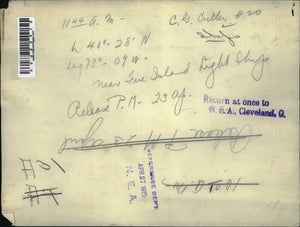 1144 A.M
C.G. Cutter #20
L 40° - 28' N
Lg 73° - 09 W.
near Fire Island Light Ship
Release P.M - 23 Ap.
Return at once to
N. E. A., Cleveland, O.
Release P.M 23 April
REFERENCE DEPT.
APR 27 1925
N. E. A.